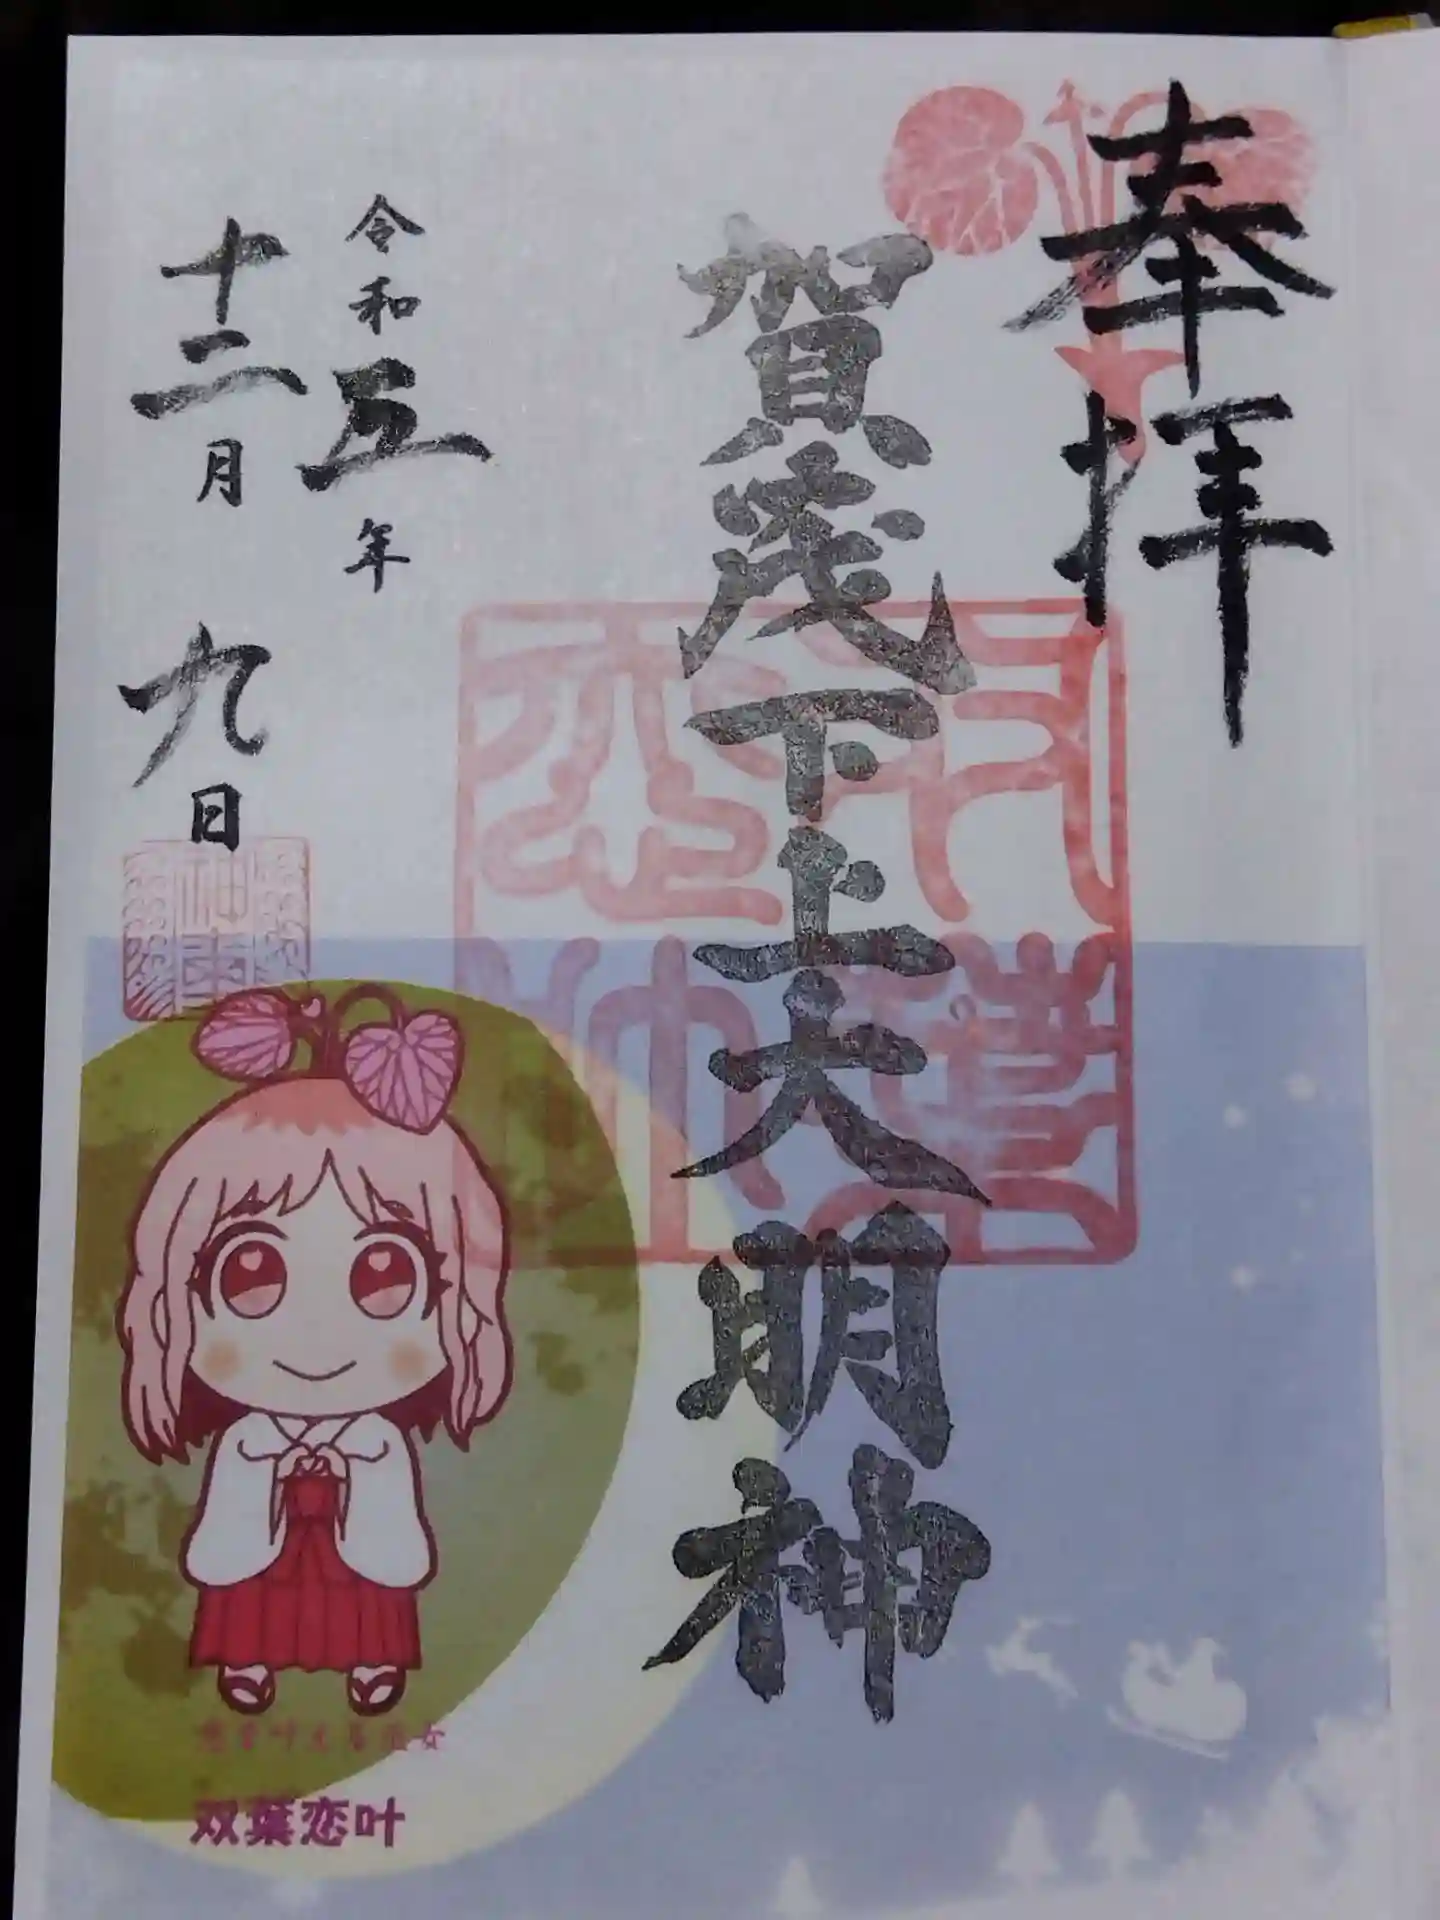 奉拝
賀茂下上大明神
令和五年
十二月九日
双葉恋叶